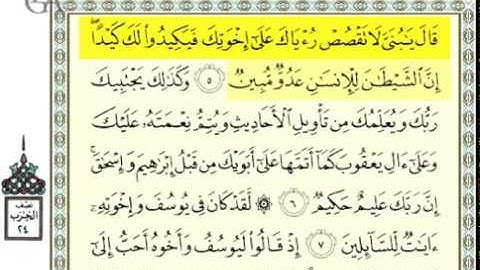 قَالَ يَٰبُنَىَّ لَا تَقْصُصْ رُءْيَاكَ عَلَىٰٓ إِخْوَتِكَ فَيَكِيدُوا۟ لَكَ كَيْدًا ۖ
إِنَّ ٱلشَّيْطَٰنَ لِلْإِنسَٰنِ عَدُوٌّ مُّبِينٌ ٥ وَكَذَٰلِكَ يَجْتَبِيكَ
رَبُّكَ وَيُعَلِّمُكَ مِن تَأْوِيلِ ٱلْأَحَادِيثِ وَيُتِمُّ نِعْمَتَهُۥ عَلَيْكَ
وَعَلَىٰٓ ءَالِ يَعْقُوبَ كَمَآ أَتَمَّهَا عَلَىٰٓ أَبَوَيْكَ مِن قَبْلُ إِبْرَٰهِيمَ وَإِسْحَٰقَ ۚ
إِنَّ رَبَّكَ عَلِيمٌ حَكِيمٌ ٦ ۞ لَّقَدْ كَانَ فِى يُوسُفَ وَإِخْوَتِهِۦٓ
ءَايَٰتٌ لِّلسَّآئِلِينَ ٧ إِذْ قَالُوا۟ لَيُوسُفُ وَأَخُوهُ أَحَبُّ إِلَىٰٓ
نصف
الحزب
٢٤